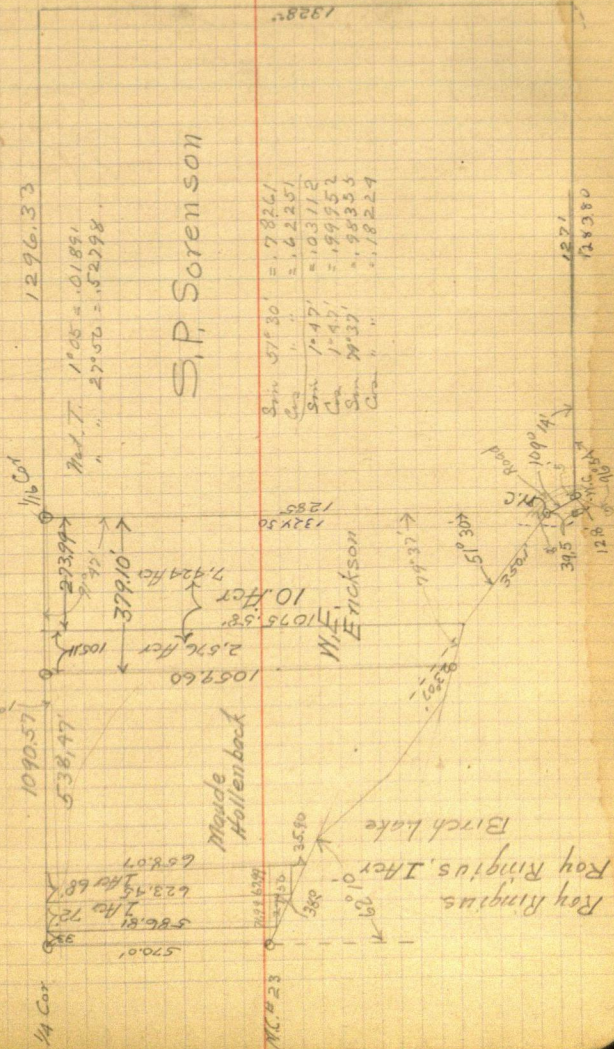 1328
1296.33
Nat. T. 1° 05' = .01891
" " 27° 50' = .52798
S.P. Sorenson
Sin 51° 30' = .78261
Cos " " = .62251
Sin 1° 47' = .03112
Cos 1° 47' = .99952
Sin 79° 37' = .98355
Cos " " = .18224
1271
1283.80
1/16 Cor
273.99'
379.10'
105.11
7.424 Acr
10 Acr
1324.50
1285
1075.58'
2.576 Acr
1059.60
W.E. Erickson
79° 37'
51° 30'
350.1
Road
109° 14'
M.C.
39.5
1090.57
538.47'
Maude
Hollenback
658.07
1 Ac 68'
623.45
1 Ac 72'
586.81
33
570.0'
35.90
380
62° 10'
Birch Lake
Roy Ringius, 1 Acr
Roy Ringius
1/4 Cor
M.C. # 23